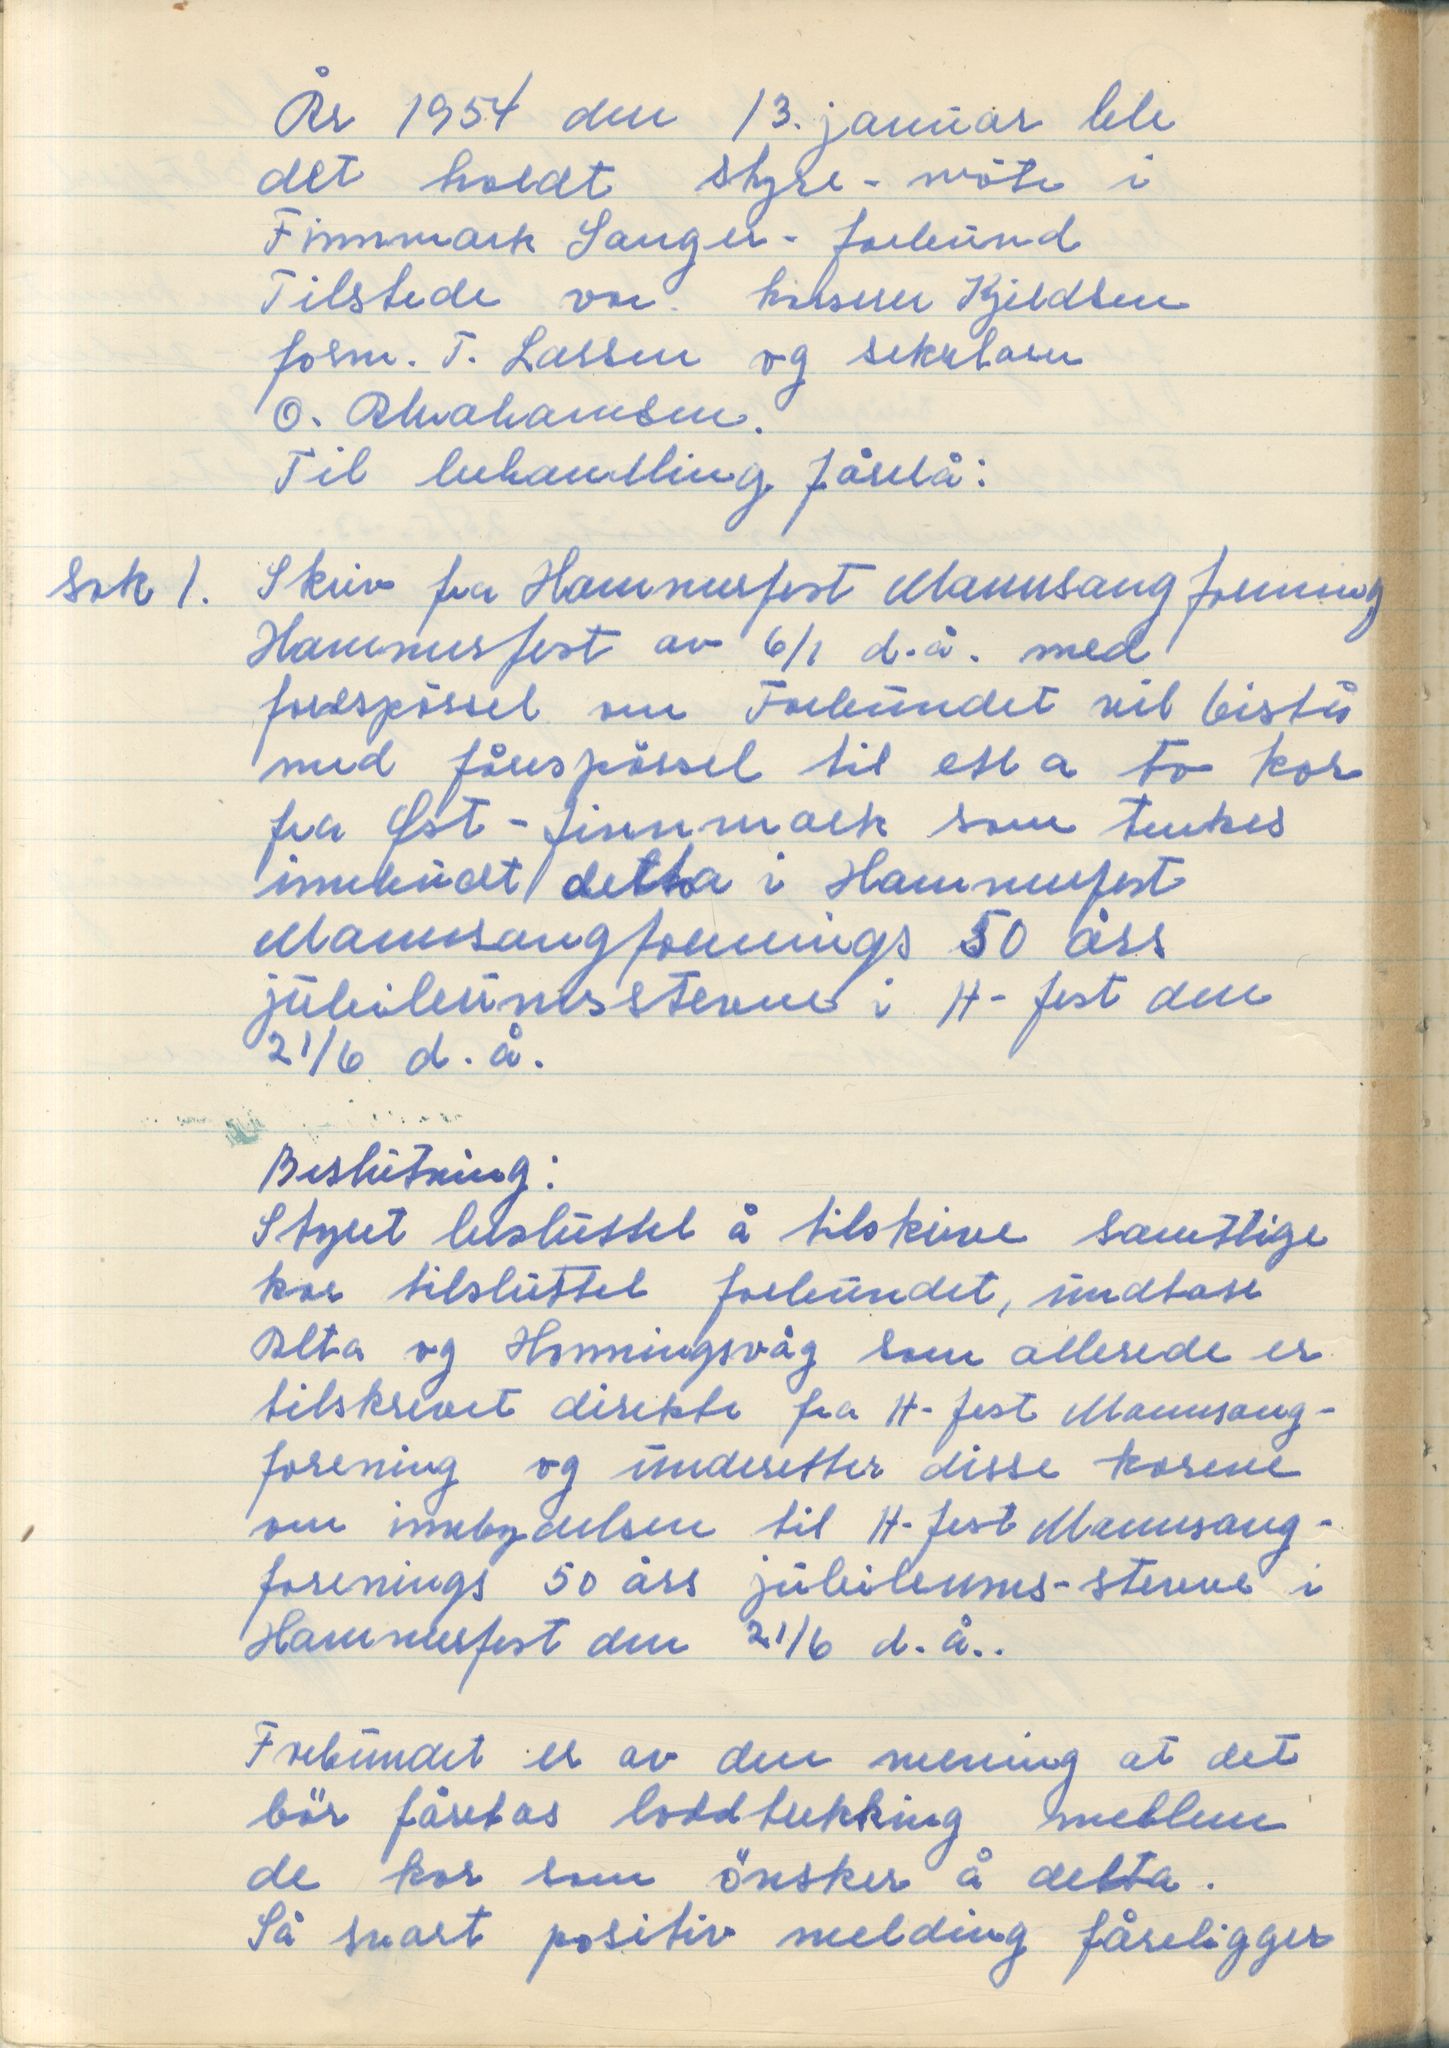 År 1954 den 13. januar ble
det holdt styre-möte i
Finnmark Sanger-forbund
Tilstede var kasserer Kjeldsen
form. T. Larsen og sekretæren
O. Abrahamsen.
Til behandling fårelå:
Sak 1. Skriv fra Hammerfest Mannsangforening
Hammerfest av 6/1 d.å. med
forespörsel om Forbundet vil bistå
med fårespörsel til et a to kor
fra Øst-finnmark som tenkes
innbudt detta i Hammerfest
Mannsangforenings 50 års
jubileumsstevne i H-fest den
21/6 d.å.
Beslutning:
Styret besluttet å tilskrive samtlige
kor tilsluttet forbundet, undtatt
Alta og Honningsvåg som allerede er
tilskrevet direkte fra H-fest Mannsang-
forening og underetter disse korene
om innbydelsen til H-fest Mannsang-
forenings 50 års jubileums-stevne i
Hammerfest den 21/6 d.å..
Forbundet er av den mening at det
bör fåretas loddtrekking mellem
de kor som önsker å delta.
Så snart positiv melding fåreligger